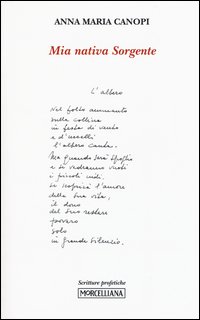 ANNA MARIA CANOPI
Mia nativa Sorgente
L'albero
Nel folto ammanto
sulla collina
in festa di vento
e d'uccelli
l'albero canta.
Ma quando sarà spoglio
e si vedranno vuoti
i piccoli nidi,
si scoprirà l'amore
della sua vita,
il dono
del suo restare
povero
solo
in grande silenzio.
Scritture profetiche
MORCELLIANA